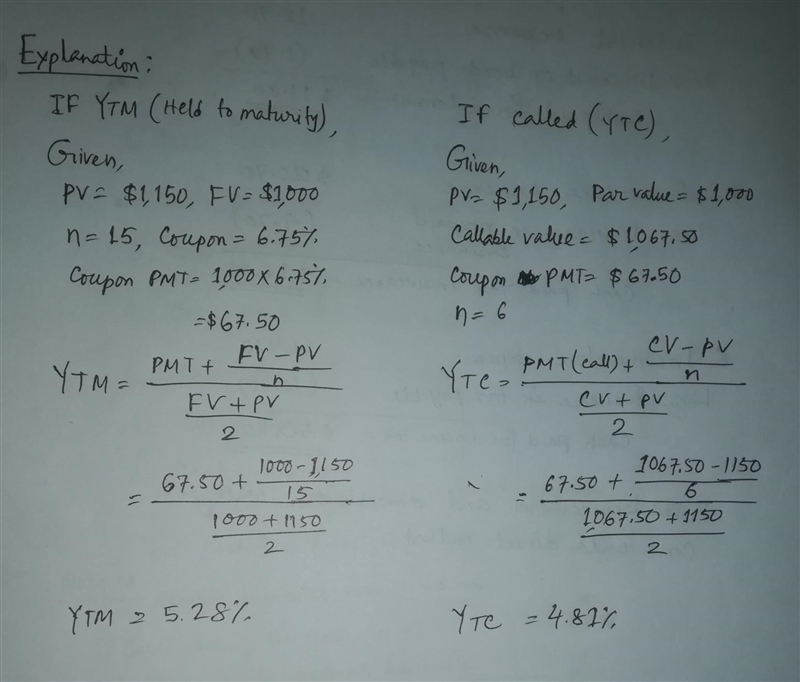 Explanation:
If YTM (Held to maturity),
Given,
PV = $1,150, FV = $1,000
n = 15, Coupon = 6.75%
Coupon PMT = 1,000 X 6.75%
= $67.50
YTM = PMT + FV - PV
n
FV + PV
2
= 67.50 + 1000 - 1,150
15
1000 + 1150
2
YTM = 5.28%
If called (YTC),
Given,
PV = $1,150, Par value = $1,000
Callable value = $1,067.50
Coupon PMT = $67.50
n = 6
YTC = PMT (call) + CV - PV
n
CV + PV
2
= 67.50 + 1067.50 - 1150
6
1067.50 + 1150
2
YTC = 4.81%